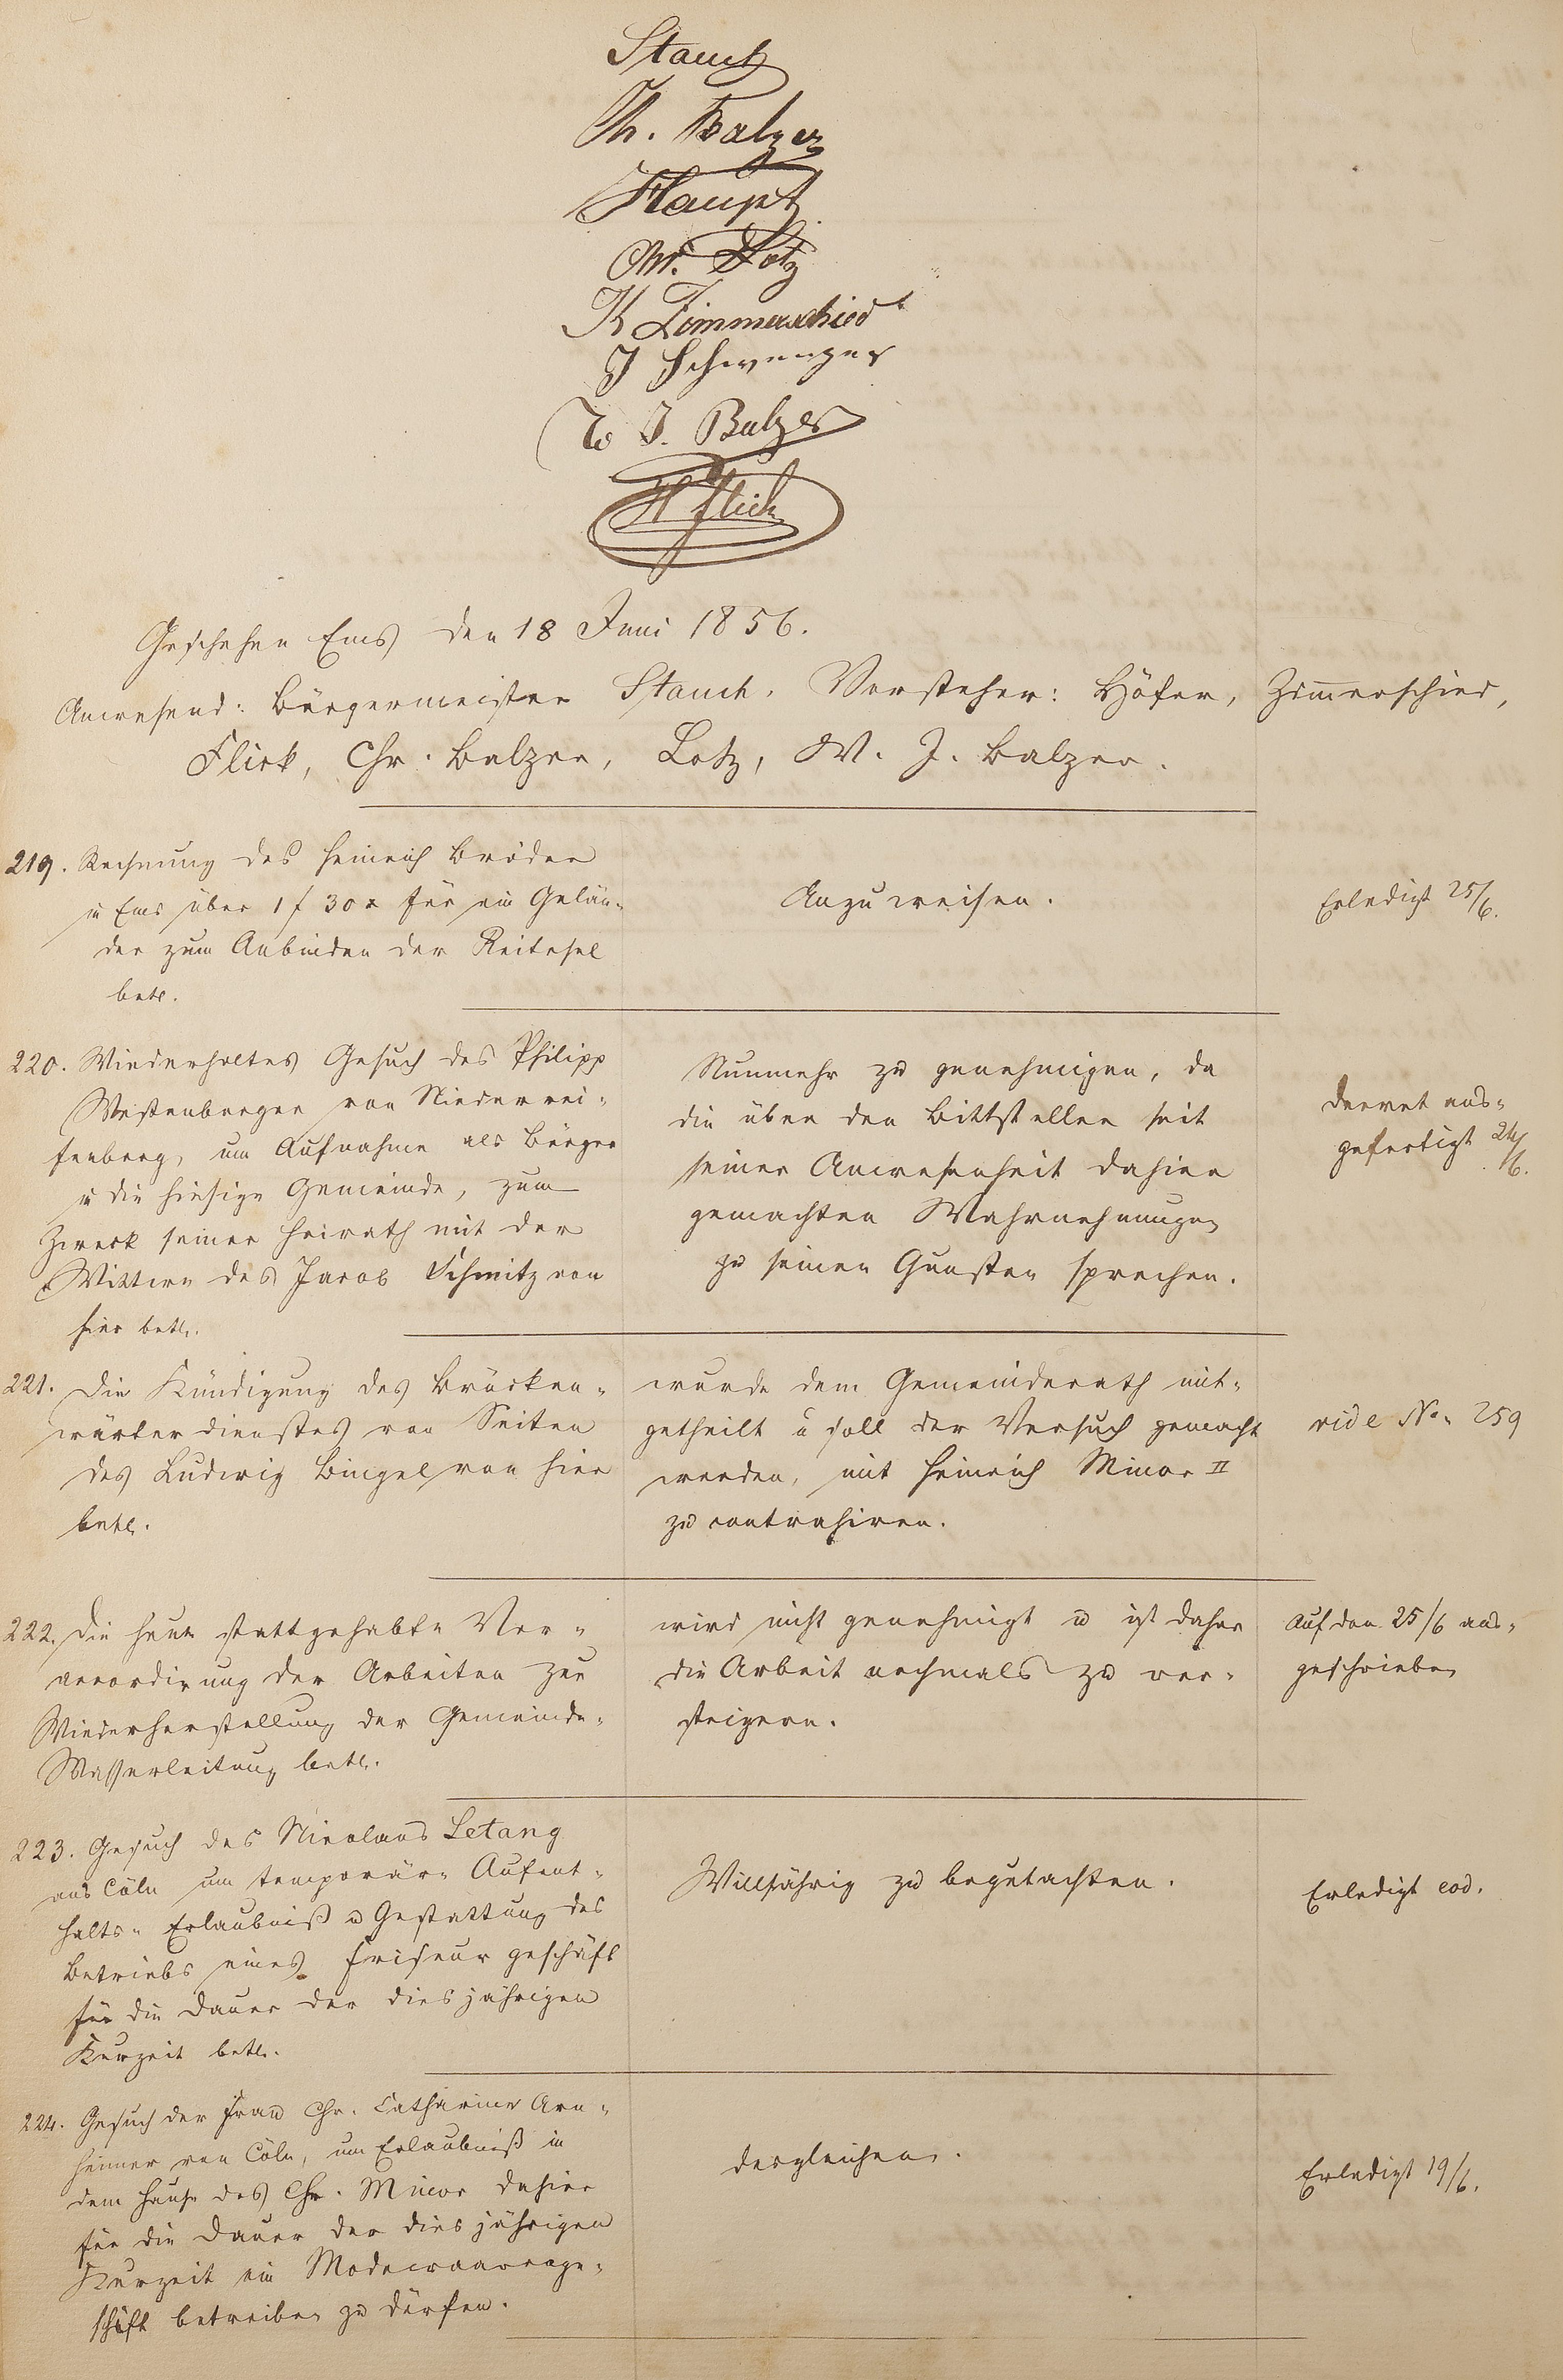 Stauch
Ch. Balzer
Haupt
Chr. Lotz
K Zimmerschied
J Schwenzer
W. J. Balzer
H Flick
Geschehen Ems den 18 Juni 1856.
Anwesend: Bürgermeister Stauch, Vorsteher: Höfer, Zimerschied,
Flick, Chr. Balzer, Lotz, W. J. Balzer.
219. Rechnung des Heinrich Bröder
in Ems über 1 f 30 x für ein Gelän-
der zum Anbinden der Reitesel
betr.
Anzuweisen.
Erledigt 25/6.
220. Wiederholtes Gesuch des Philipp
Westenberger von Niederrei-
fenberg, um Aufnahme als Bürger
in die hiesige Gemeinde, zum
Zweck seiner Heirath mit der
Wittwe des Jacob Schmitz von
hier betr.
Nunmehr zu genehmigen, da
die über den Bittsteller seit
seiner Anwesenheit dahier
gemachten Wahrnehmungen
zu seinen Gunsten sprechen.
Decret aus-
gefertigt 24/6.
221. Die Kündigung des Brücken-
wärterdienstes von Seiten
des Ludwig Bingel von hier
betr.
wurde dem Gemeinderath mit-
getheilt u soll der Versuch gemacht
werden, mit Heinrich Minor II
zu contrahiren.
vide No. 259
222. Die heute stattgehabte Ver-
accordirung der Arbeiten zur
Wiederherstellung der Gemeinde-
Wasserleitung betr.
wird nicht genehmigt u ist daher
die Arbeit nochmals zu ver-
steigern.
Auf den 25/6 aus-
geschrieben
223. Gesuch des Nicolaus Letang
aus Cöln um temporäre Aufent-
halts-Erlaubniß u Gestattung des
Betriebs eines Friseurgeschäft
für die Dauer der diesjährigen
Kurzeit betr.
Willfährig zu begutachten.
Erledigt eod.
224. Gesuch der Frau Chr. Catharine Arn-
heimer von Cöln, um Erlaubniß in
dem Hause des Chr. Minor dahier
für die Dauer der diesjährigen
Kurzeit ein Modewaarenge-
schäft betreiben zu dürfen.
desgleichen.
Erledigt 19/6.